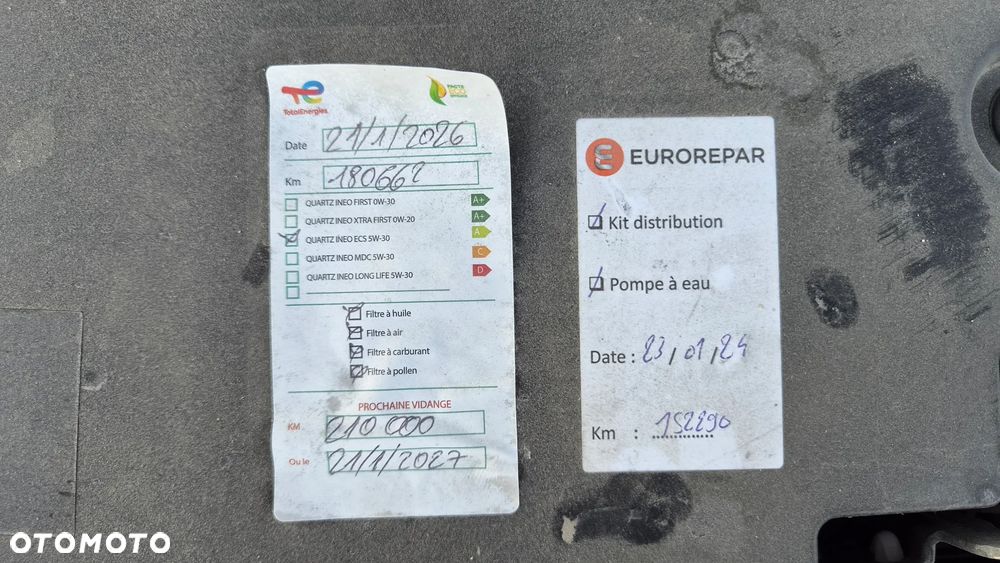 TotalEnergies
Date 21/1/2026
Km 180662
QUARTZ INEO FIRST 0W-30 A+
QUARTZ INEO XTRA FIRST 0W-20 A+
QUARTZ INEO ECS 5W-30 A
QUARTZ INEO MDC 5W-30 C
QUARTZ INEO LONG LIFE 5W-30 D
Filtre à huile
Filtre à air
Filtre à carburant
Filtre à pollen
PROCHAINE VIDANGE
KM 210 000
Ou le 21/1/2027
EUROREPAR
Kit distribution
Pompe à eau
Date : 23/01/24
Km : 152290
OTOMOTO